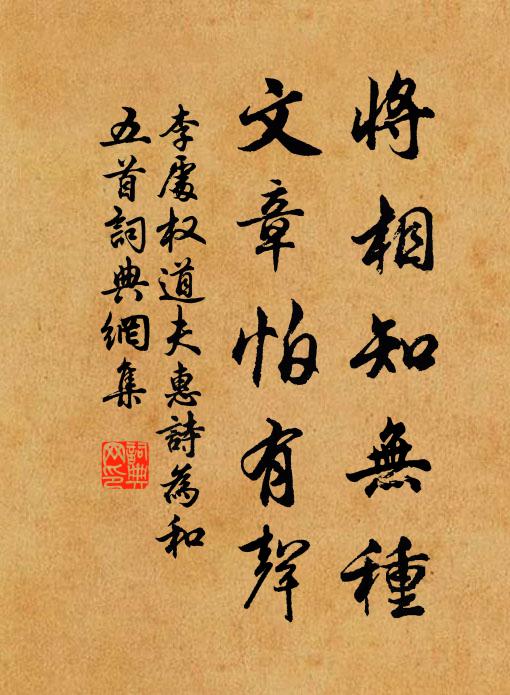 将相知無種
文章怕有聲
李處权道夫惠詩為和
五首詞典網集
詞典網印